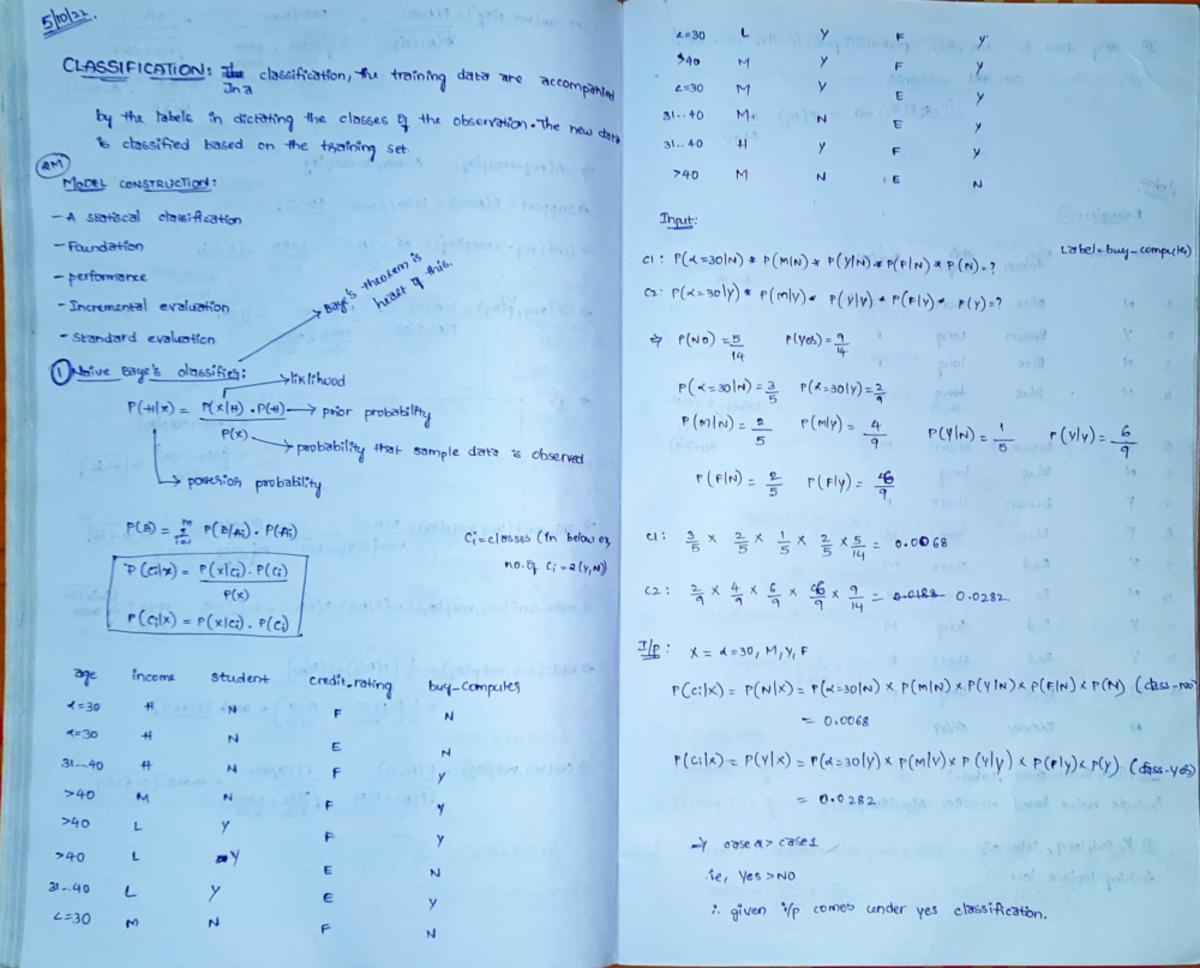 5/10/22.
CLASSIFICATION: In a classification, the training data are accompanied
by the labels in dictating the classes of the observation. The new data
is classified based on the training set.
2M
MODEL CONSTRUCTION:
- A statiscal classification
- Foundation
- performance
- Incremental evaluation
- Standard evaluation
→ Baye's theorem is
heart of this.
① Naive Baye's classifier:
→ liklihood
P(H|x) = P(x|H) . P(H) → prior probability
P(x) → probability that sample data is observed
→ posterior probability
P(B) = Σ P(B/Ai) . P(Ai)
Ci = classes (in below ex,
no. of Ci = 2 (Y,N))
P(Ci|x) = P(x|Ci) . P(Ci)
P(x)
P(Ci|x) = P(x|Ci) . P(Ci)
age income student credit_rating buy-computer
<=30 H N F N
<=30 H N E N
31--40 H N F Y
>40 M N F Y
>40 L Y F Y
>40 L Y E N
31--40 L Y E Y
<=30 M N F N
<=30 L Y F Y
>40 M Y F Y
<=30 M Y E Y
31--40 M N E Y
31..40 H Y F Y
>40 M N E N
Input:
Label = buy-computer
C1: P(<=30|N) * P(M|N) * P(Y|N) * P(F|N) * P(N) = ?
C2: P(<=30|Y) * P(M|Y) * P(Y|Y) * P(F|Y) * P(Y) = ?
⇒ P(NO) = 5/14 P(Yes) = 9/14
P(<=30|N) = 3/5 P(<=30|Y) = 2/9
P(M|N) = 2/5 P(M|Y) = 4/9 P(Y|N) = 1/5 P(Y|Y) = 6/9
P(F|N) = 2/5 P(F|Y) = 6/9
C1: 3/5 × 2/5 × 1/5 × 2/5 × 5/14 = 0.0068
C2: 2/9 × 4/9 × 6/9 × 6/9 × 9/14 = 0.0188 0.0282
I/p: X = <=30, M, Y, F
P(Ci|X) = P(N|X) = P(<=30|N) × P(M|N) × P(Y|N) × P(F|N) × P(N) (class-no)
= 0.0068
P(Ci|X) = P(Y|X) = P(<=30|Y) × P(M|Y) × P(Y|Y) × P(F|Y) × P(Y) (class-yes)
= 0.0282
→ case 2 > case 1
ie, Yes > NO
∴ given i/p comes under yes classification.